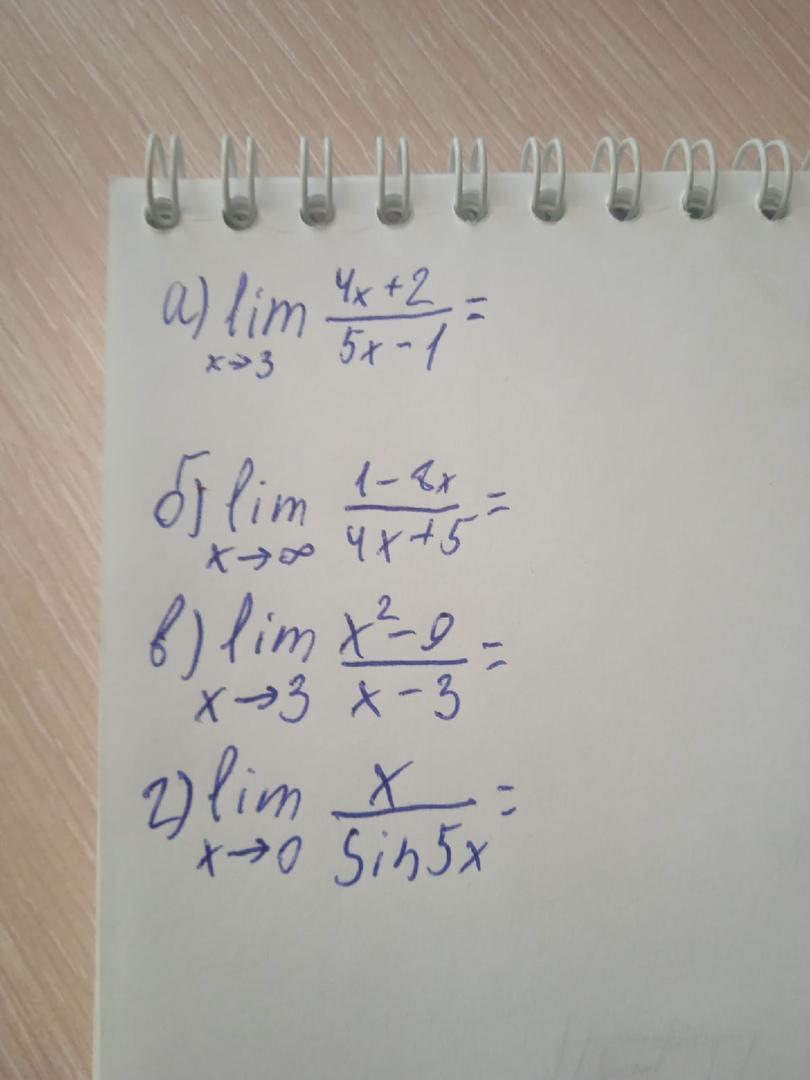 а) lim x→3 (4x+2)/(5x-1) =
б) lim x→∞ (1-8x)/(4x+5) =
в) lim x→3 (x²-9)/(x-3) =
г) lim x→0 x/(sin5x) =